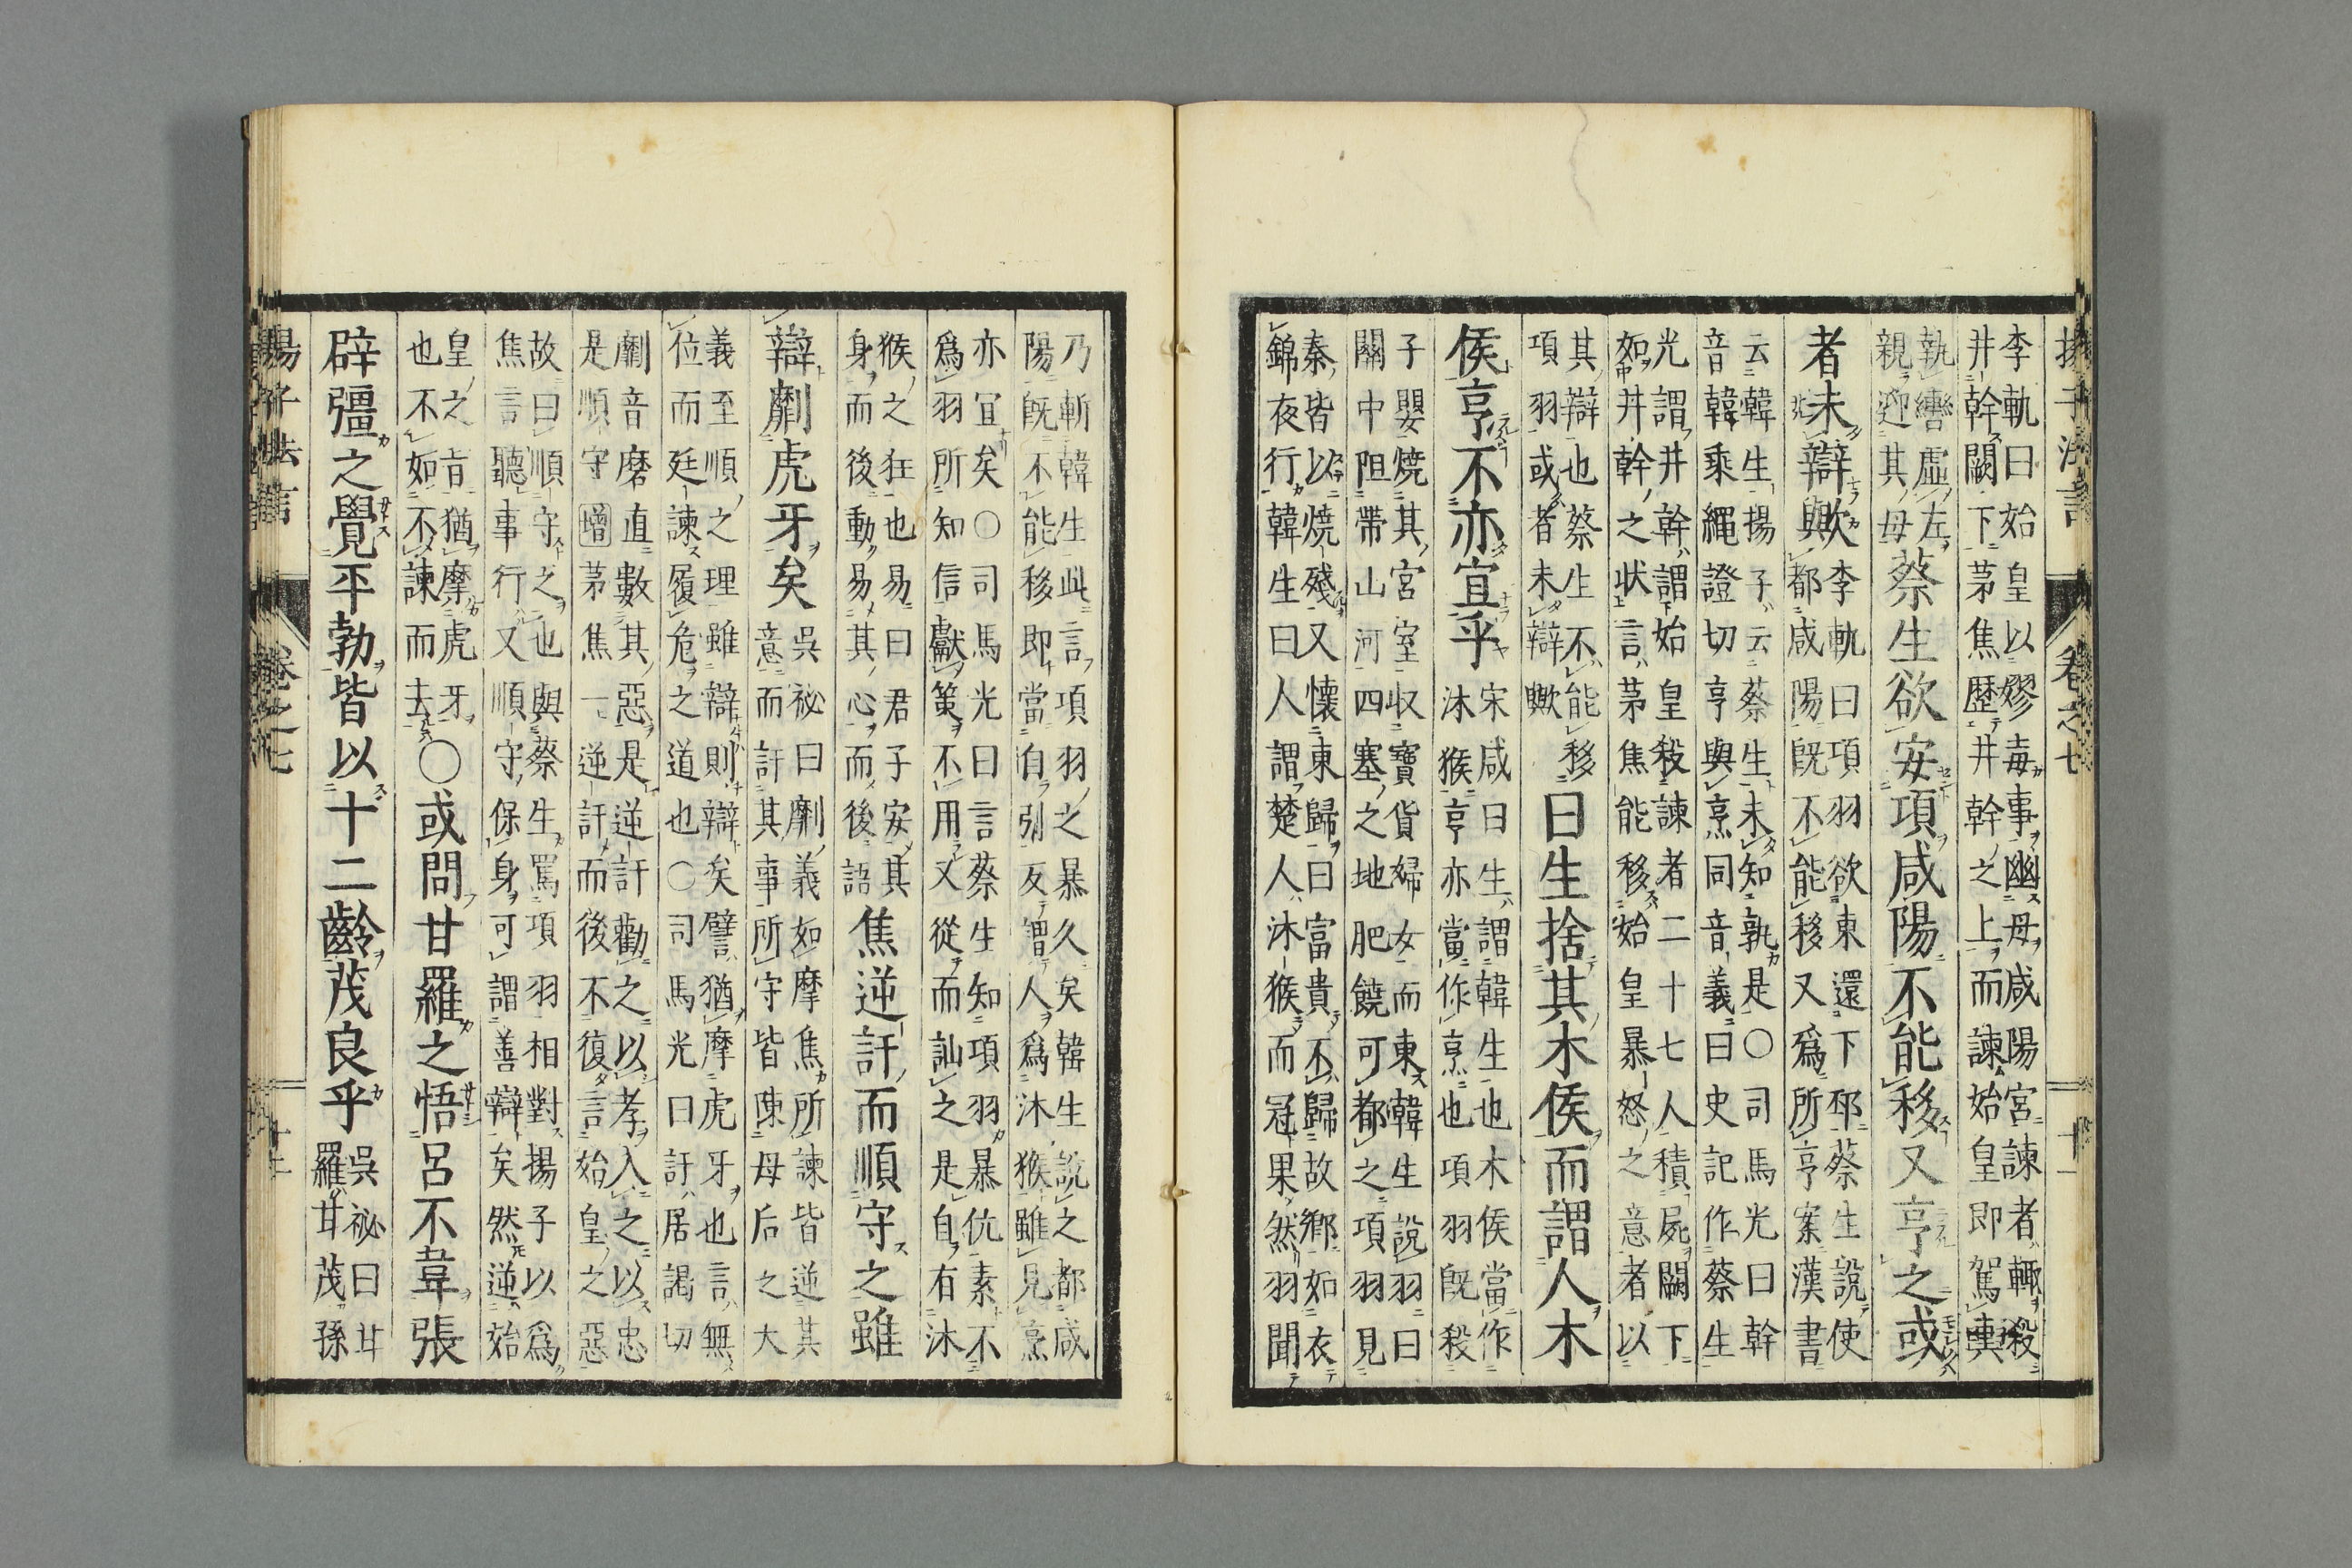 揚子法言　卷之七　十一
李軌曰始皇以嫪毐事幽母咸陽宮諫者輙殺
井幹闕下茅焦歷井幹之上而諫始皇即駕輿
執轡虛左
親迎其母蔡生欲安項咸陽不能移又亨之或
者未辯歟李軌曰項羽欲東還下邳蔡生說使
與都咸陽旣不能移又爲所亨案漢書
云韓生揚子云蔡生未知孰是○司馬光曰幹
音韓乘繩證切亨與烹同音義曰史記作蔡生
光謂井幹謂始皇殺諫者二十七人積屍闕下
如井幹之状言茅焦能移始皇暴怒之意者以
其辯也蔡生不能移
項羽或者未辯歟曰生捨其木侯而謂人木
侯亨不亦宜乎宋咸曰生謂韓生也木侯當作
沐猴亨亦當作烹也項羽旣殺
子嬰燒其宮室収寶貨婦女而東韓生說羽曰
關中阻帶山河四塞之地肥饒可都之項羽見
秦皆以燒殘又懷東歸曰富貴不歸故鄉如衣
錦夜行韓生曰人謂楚人沐猴而冠果然羽聞
乃斬韓生此言項羽之暴久矣韓生說之都咸
陽旣不能移即當自引反譖人爲沐猴雖見烹
亦宜矣○司馬光曰言蔡生知項羽暴伉素不
爲羽所知信獻策不用又從而訕之是自有沐
猴之狂也易曰君子安其
身而後動易其心而後語焦逆訐而順守之雖
辯劘虎牙矣吳祕曰劘義如摩焦所諫皆逆其
意而訐其事所守皆陳母后之大
義至順之理雖辯則辯矣譬猶摩虎牙也言無
位而廷諫履危之道也○司馬光曰訐居謁切
劘音磨直數其惡是逆訐勸之以孝入之以忠
是順守增茅焦一逆訐而後不復言始皇之惡
故曰順守之也與蔡生罵項羽相對揚子以爲
焦言聽事行又順守保身可謂善辯矣然逆始
皇之旨猶摩虎牙
也不如不諫而去○或問甘羅之悟呂不韋張
辟彊之覺平勃皆以十二齡茂良乎吳祕曰甘
羅甘茂孫
揚子法言　卷之七　十二